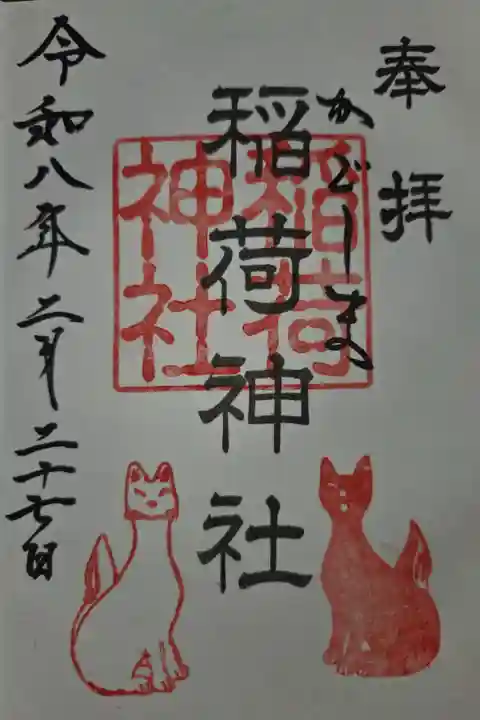 奉拝
かどしま
稲荷神社
稲荷神社
令和八年二月二十七日